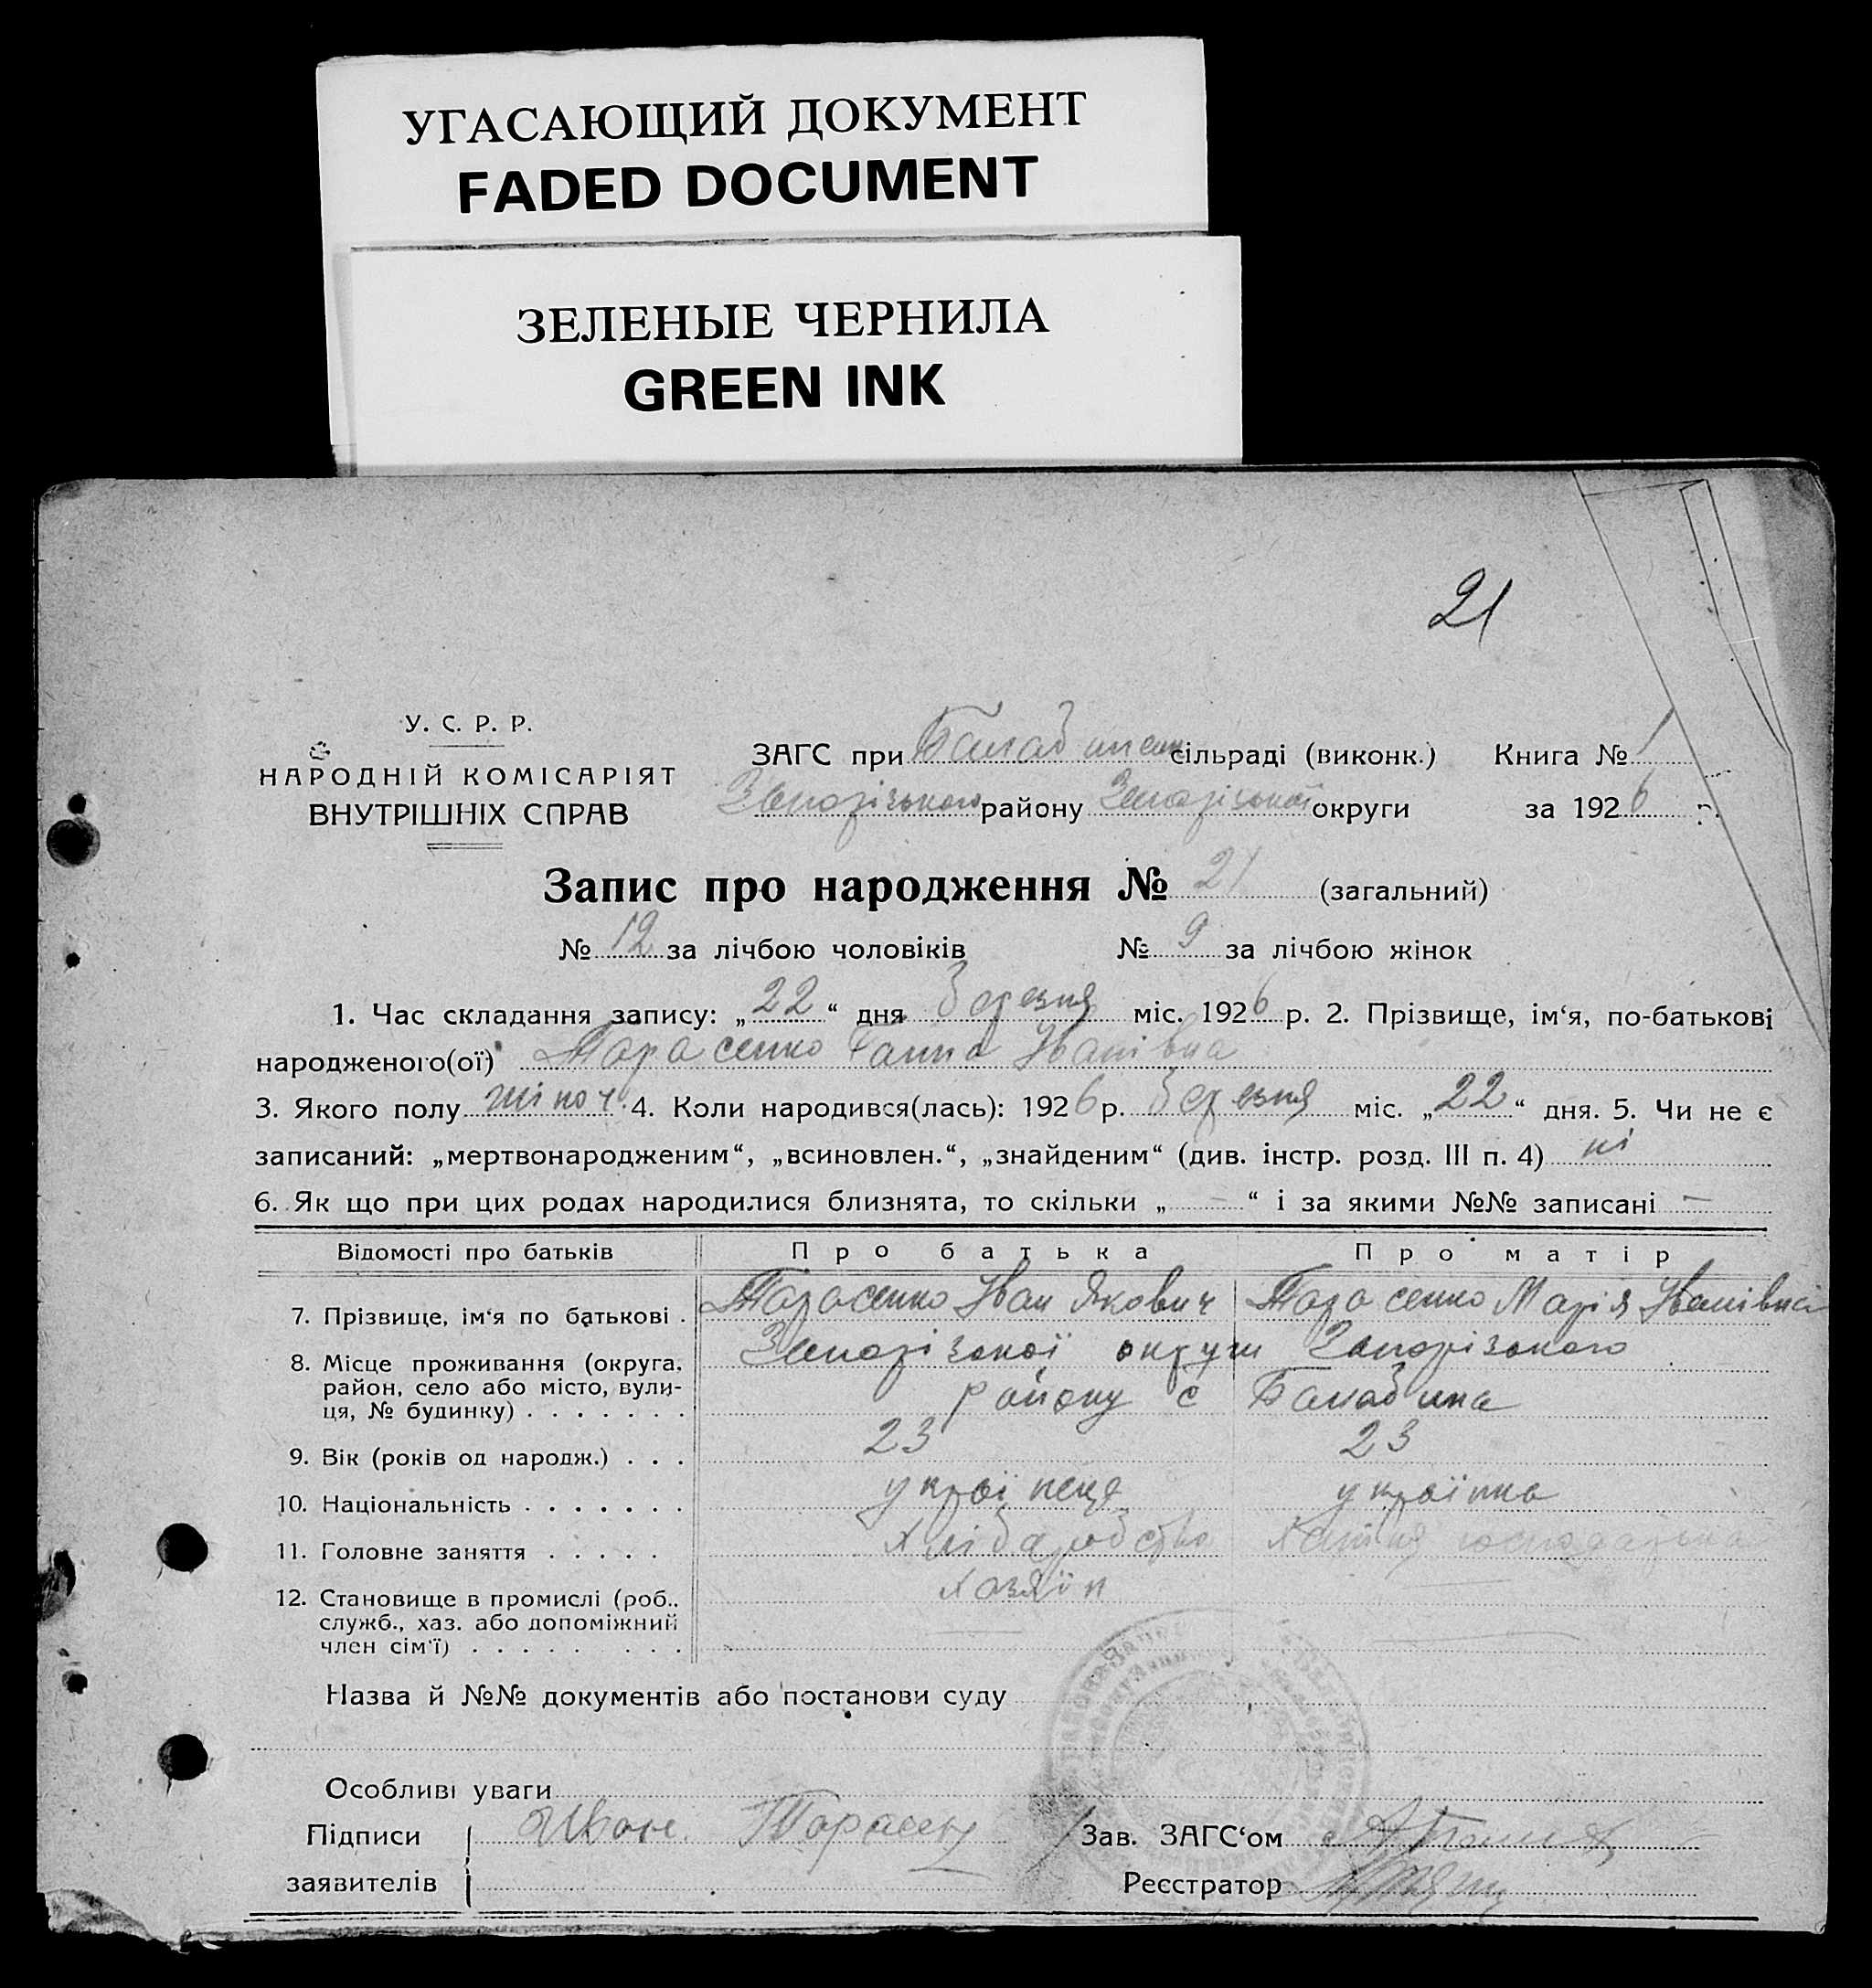 УГАСАЮЩИЙ ДОКУМЕНТ
FADED DOCUMENT
ЗЕЛЕНЫЕ ЧЕРНИЛА
GREEN INK
21
У. С. Р. Р.
НАРОДНІЙ КОМІСАРІЯТ
ВНУТРІШНІХ СПРАВ
ЗАГС при Балабинськ сільраді (виконк.) Книга № 1
Запорізького району Запорізької округи за 1926 р.
Запис про народження № 21 (загальний)
№ 12 за лічбою чоловіків № 9 за лічбою жінок
1. Час складання запису: „22“ дня березня міс. 1926 р. 2. Прізвище, ім‘я, по-батькові
народженого(ої) Тарасенко Ганна Іванівна
3. Якого полу жіноч. 4. Коли народився(лась): 1926 р. березня міс. „22“ дня. 5. Чи не є
записаний: „мертвонародженим“, „всиновлен.“, „знайденим“ (див. інстр. розд. III п. 4) ні
6. Як що при цих родах народилися близнята, то скільки „ — “ і за якими №№ записані —
Відомості про батьків Про батька Про матір
7. Прізвище, ім‘я по батькові . Тарасенко Іван Якович Тарасенко Марія Іванівна
8. Місце проживання (округа, Запорізької округи Запорізького
район, село або місто, вули-
ця, № будинку) . . . . . . . району с Балабина
9. Вік (років од народж.) . . . 23 23
10. Національність . . . . . . . українець українка
11. Головне заняття . . . . . Хліборобство Хатня господарька
12. Становище в промислі (роб., Хозяїн
служб., хаз. або допоміжний
член сім‘ї) . . . . . . . .
Назва й №№ документів або постанови суду
Особливі уваги
Підписи Иван Тарасен
заявителів
Зав. ЗАГС‘ом
Реєстратор